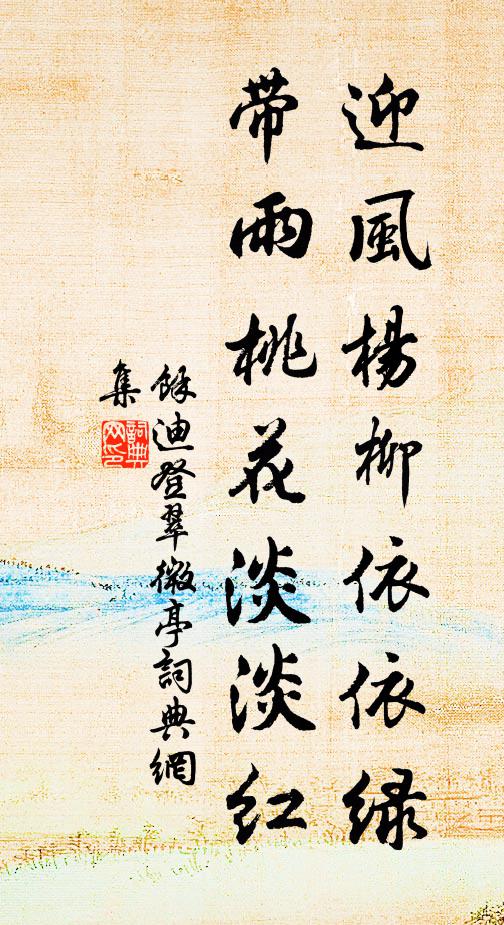 迎風楊柳依依綠
帶雨桃花淡淡紅
餘迪登翠微亭詞典網
集
詞典
网印